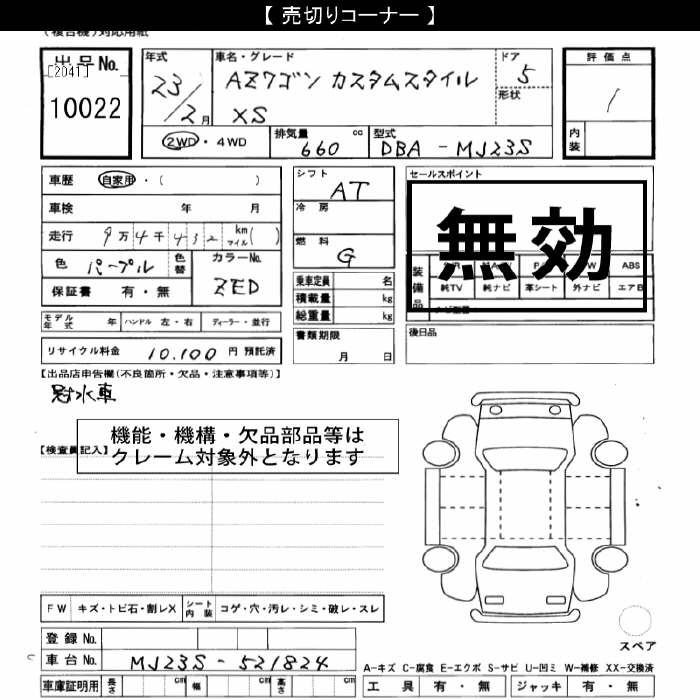 【 売切りコーナー 】
(複合機)対応用紙
出品No.
[2041]
10022
年式
23/2月
車名・グレード
AZワゴン カスタムスタイル
XS
ドア
5
形状
評価点
1
内装
2WD・4WD
排気量 660 cc
型式 DBA-MJ23S
車歴 自家用・( )
車検 年 月
走行 9万4千432 km マイル( )
色 パープル 色替
カラーNo. ZED
保証書 有・無
モデル年式 年 ハンドル 左・右 ディーラー・並行
リサイクル料金 10,100 円 預託済
シフト
AT
冷房
燃料
G
乗車定員 名
積載量 kg
総重量 kg
書類期限
月 日
セールスポイント
無効
装備品
ABS
純TV 純ナビ 革シート 外ナビ エアB
後日品
【出品店申告欄(不良箇所・欠品・注意事項等)】
冠水車
機能・機構・欠品部品等は
クレーム対象外となります
【検査員記入】
FW キズ・トビ石・割レX シート内装 コゲ・穴・汚レ・シミ・破レ・スレ
登録No.
車台No. MJ23S-521824
車庫証明用 長さ cm 幅 cm 高さ cm
スペア
A-キズ C-腐食 E-エクボ S-サビ U-凹ミ W-補修 XX-交換済
工具 有・無 ジャッキ 有・無